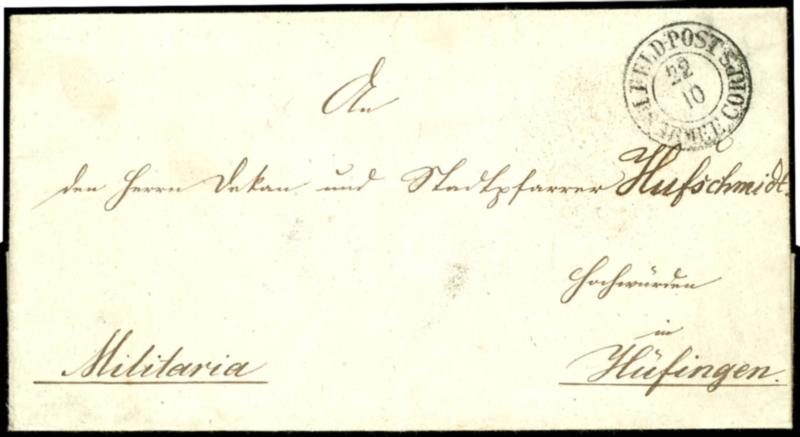 FELD-POST
22
10
ARMEE CORPS
An
den Herrn Dekan und Stadtpfarrer Hufschmidt.
Hochwürden
in
Militaria
Hüfingen.